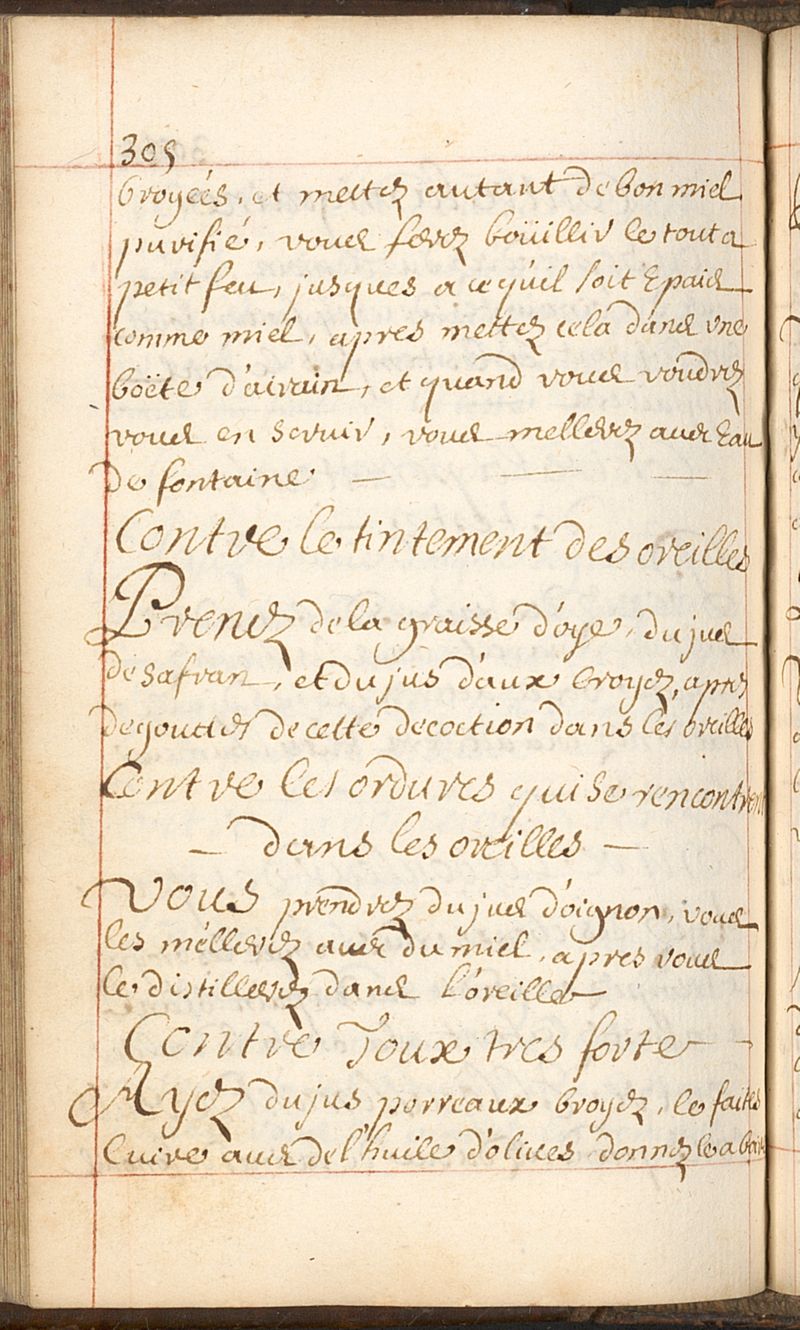 305
broyées, et mettez autant de bon miel
purifié, vous ferez boüillir le tout a
petit feu, jusques a ce qu'il soit Epais
comme miel, apres mettez cela dans une
boëte d'airain, et quand vous voudrez
vous en servir, vous mellerez avec Eau
de fontaine
Contre le tintement des oreilles
Prenez de la graisse d'oye, du jus
de safran, et du jus d'aux broyez, aprez
degouttez de cette decoction dans les oreilles
Contre les ordures qui se rencontrent
dans les oreilles
Vous prendrez du jus d'oignon, vous
les mellerez avec du miel, apres vous
le distillerez dans l'oreille
Contre Toux tres forte
Ayez du jus porreaux broyez, le faites
Cuire avec de l'huile d'olives donnez le a boire